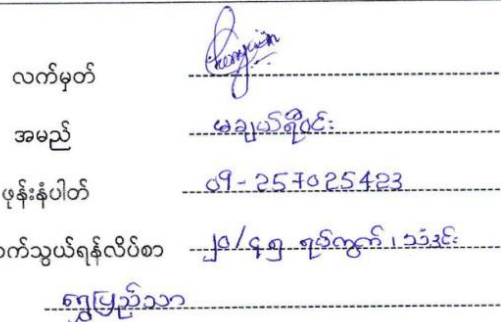 လက်မှတ်
အမည် မချယ်ရီဝင်း
ဖုန်းနံပါတ် 09-257025423
က်သွယ်ရန်လိပ်စာ ၂၀/၄၅ ရပ်ကွက်၊
ရွှေပြည်သာ